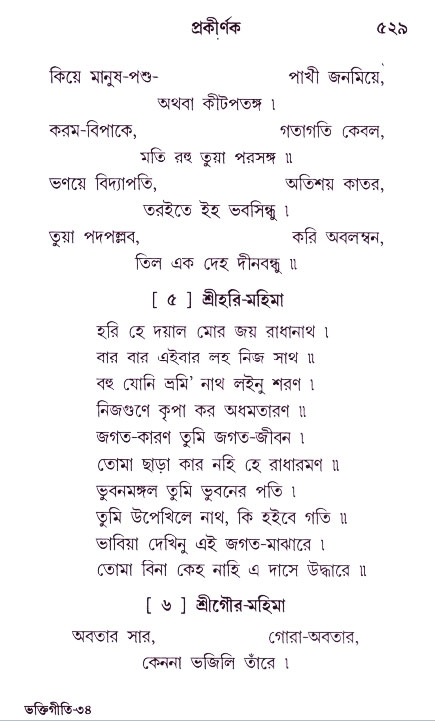 প্রকীর্ণক ৫২৯
কিয়ে মানুষ-পশু- পাখী জনমিয়ে,
অথবা কীটপতঙ্গ ৷
করম-বিপাকে, গতাগতি কেবল,
মতি রহু তুয়া পরসঙ্গ ॥
ভণয়ে বিদ্যাপতি, অতিশয় কাতর,
তরইতে ইহ ভবসিন্ধু ৷
তুয়া পদপল্লব, করি অবলম্বন,
তিল এক দেহ দীনবন্ধু ॥
[ ৫ ] শ্রীহরি-মহিমা
হরি হে দয়াল মোর জয় রাধানাথ ৷
বার বার এইবার লহ নিজ সাথ ॥
বহু যোনি ভ্রমি’ নাথ লইনু শরণ ৷
নিজগুণে কৃপা কর অধমতারণ ॥
জগত-কারণ তুমি জগত-জীবন ৷
তোমা ছাড়া কার নহি হে রাধারমণ ॥
ভুবনমঙ্গল তুমি ভুবনের পতি ৷
তুমি উপেখিলে নাথ, কি হইবে গতি ॥
ভাবিয়া দেখিনু এই জগত-মাঝারে ৷
তোমা বিনা কেহ নাহি এ দাসে উদ্ধারে ॥
[ ৬ ] শ্রীগৌর-মহিমা
অবতার সার, গোরা-অবতার,
কেননা ভজিলি তাঁরে ৷
ভক্তিগীতি-৩৪